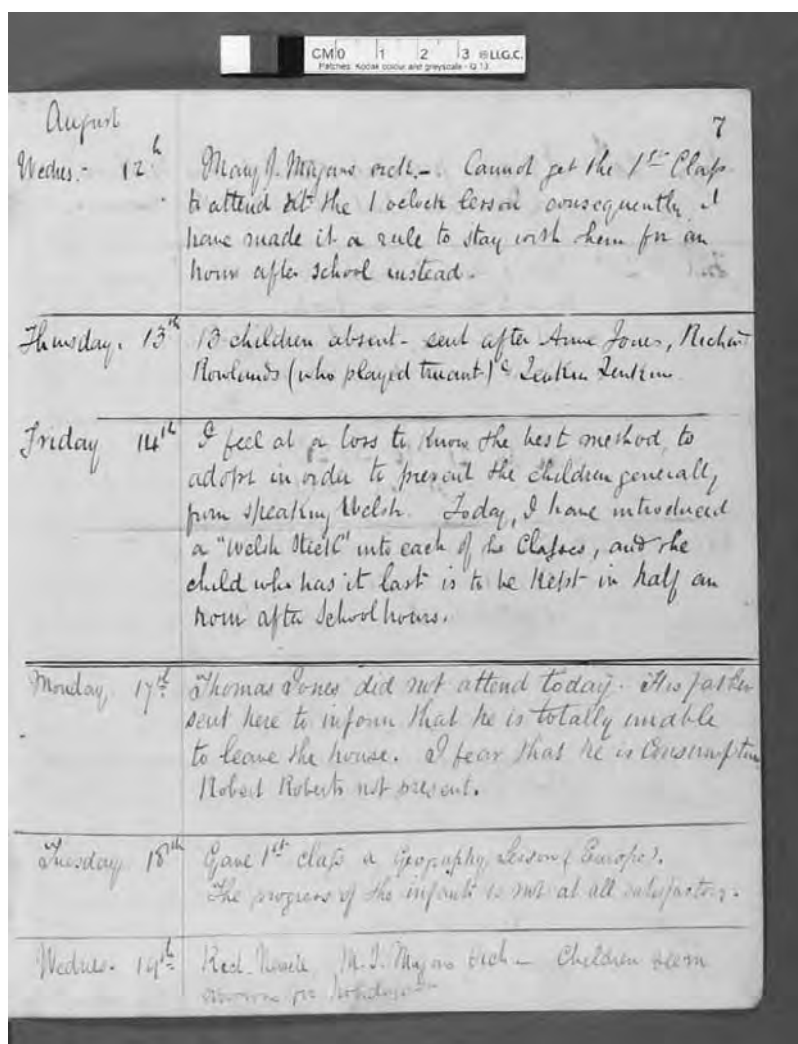 CM 0 1 2 3 © Ll.G.C.
Patches: Kodak colour and greyscale - Q 13
7
August
Wednes:- 12th Mary J. Magans sick.- Cannot get the 1st Class
to attend at the 1 oclock lesson consequently I
have made it a rule to stay with them for an
hour after school instead.
Thursday. 13th 13 children absent - sent after Anne Jones, Richard
Rowlands (who played truant) & Jenkin Jenkins
Friday 14th I feel at a loss to know the best method to
adopt in order to prevent the children generally
from speaking Welsh. Today, I have introduced
a "Welsh Stick" into each of the Classes, and the
child who has it last is to be kept in half an
hour after school hours.
Monday 17th Thomas Jones did not attend today. His father
sent here to inform that he is totally unable
to leave the house. I fear that he is Consumptive
Robert Roberts not present.
Tuesday 18th Gave 1st class a Geography Lesson (Europe).
The progress of the infants is not at all satisfactory.
Wednes. 19th M. J. Magans sick - Children seem
for holidays